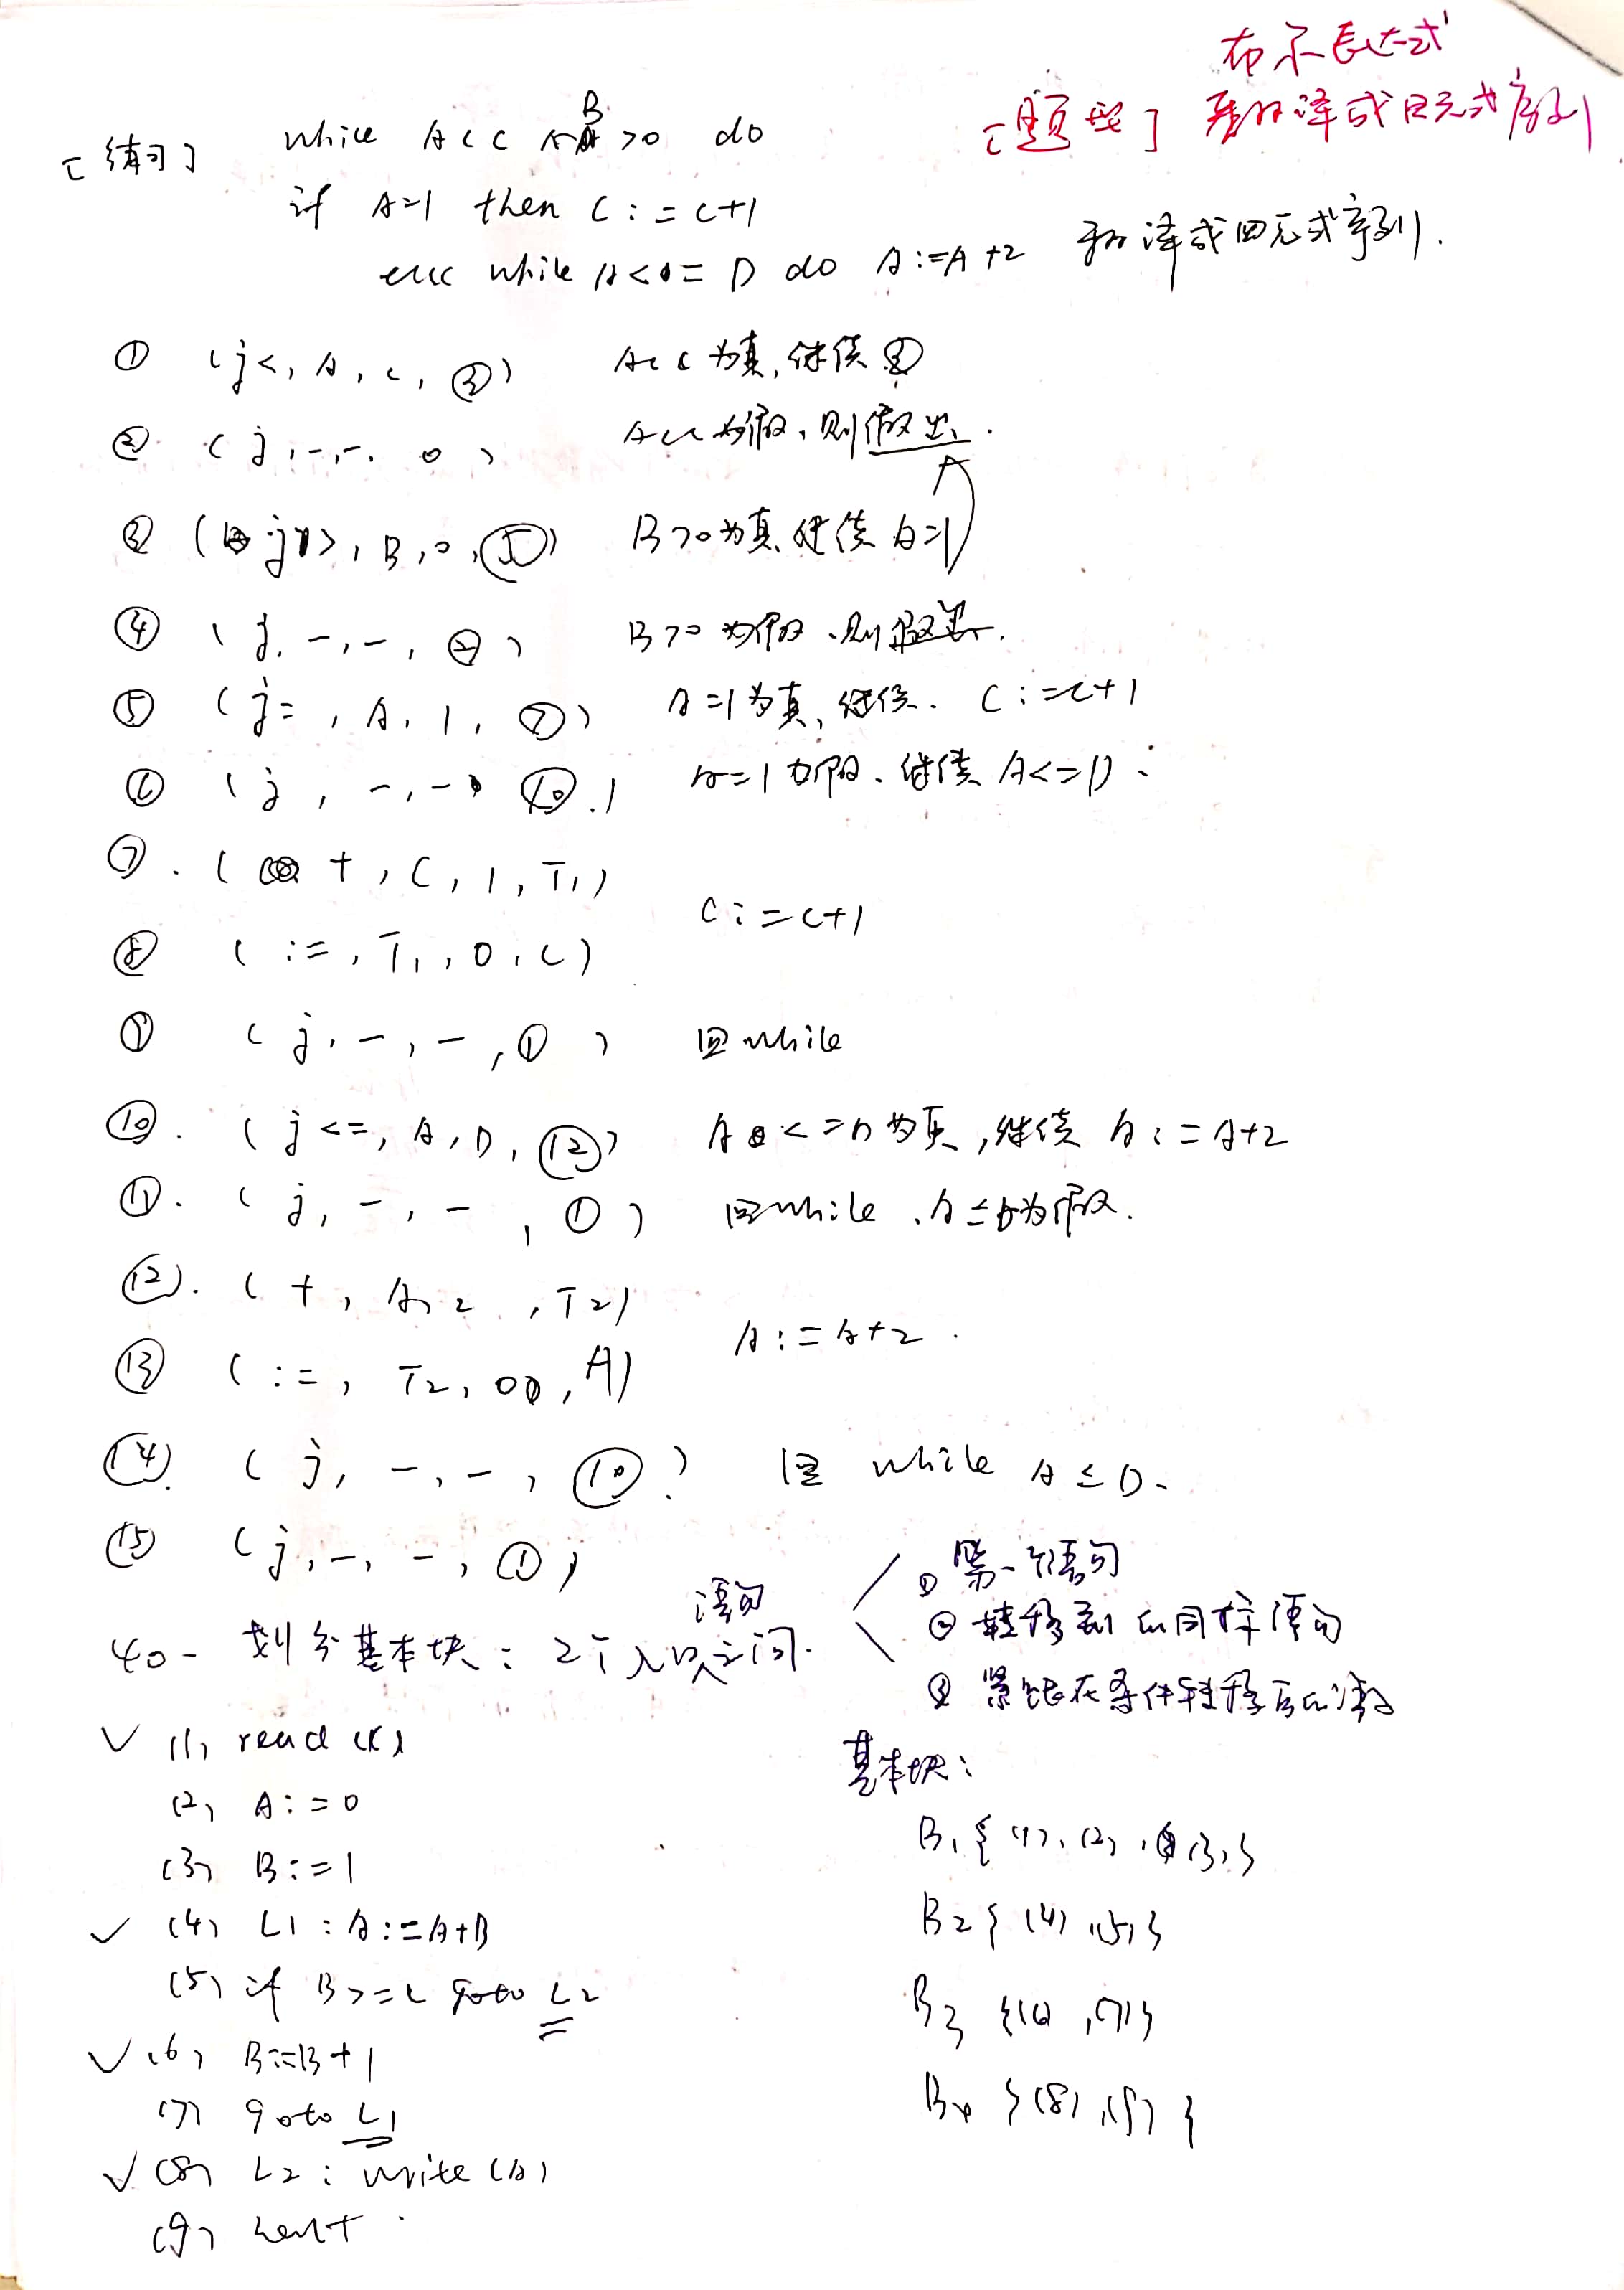 布尔表达式
[题型] 翻译成四元式序列
[练习] while A<C ∧ B>0 do
if A=1 then C:=C+1
else while A<= D do A:=A+2 翻译成四元式序列.
① (j<, A, C, ③) A<C为真,继续③
② (j,-,-, 0) A<C为假,则假出.
③ (j>, B, 0, ⑤) B>0为真,继续A=1
④ (j,-,-, ②) B>0为假,则假出.
⑤ (j=, A, 1, ⑦) A=1为真,继续. C:=C+1
⑥ (j, -,-, ⑩) A=1为假、继续 A<=D
⑦. (+, C, 1, T1)
C:=C+1
⑧ (:=, T1, 0, C)
⑨ (j,-,-,①) 回while
⑩. (j<=, A, D, ⑫) A<=D为真,继续 A:=A+2
⑪. (j,-,-,①) 回while,A≤D为假.
⑫. (+, A, 2, T2)
A:=A+2.
⑬ (:=, T2, 0, A)
⑭. (j,-,-,⑩) 回 while A≤D.
⑮ (j,-,-,①)
40- 划分基本块: 2个入口语句之间.
① 第一个语句
② 转移到的同样语句
③ 紧跟在条件转移后的语句
✓ (1) read (C)
(2) A:=0
(3) B:=1
✓ (4) L1:A:=A+B
(5) if B>=C goto L2
✓ (6) B:=B+1
(7) goto L1
✓ (8) L2: write(A)
(9) halt
基本块:
B1 {(1), (2), (3)}
B2 {(4), (5)}
B3 {(6), (7)}
B4 {(8), (9)}